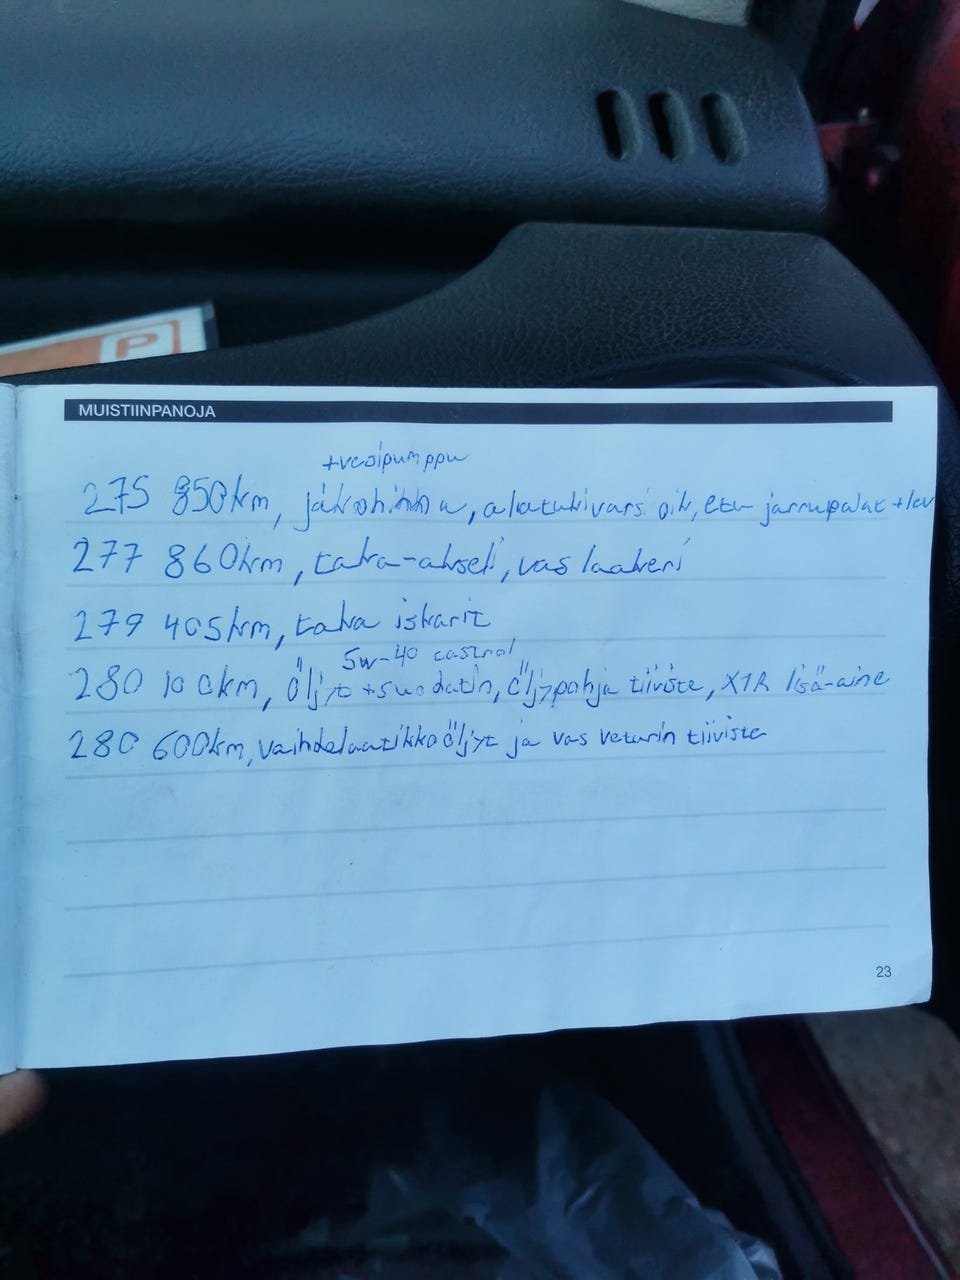 P
MUISTIINPANOJA
+vesipumppu
275 850km, jakohihna, alatukivarsi oik, etu- jarrupalat + lev
277 860km, taka-akseli, vas laakeri
279 405km, taka iskarit
5w-40 castrol
280 100km, Öljyt + suodatin, öljypohja tiiviste, X1R lisä-aine
280 600km, vaihdelaatikkoöljyt ja vas veturin tiiviste
23